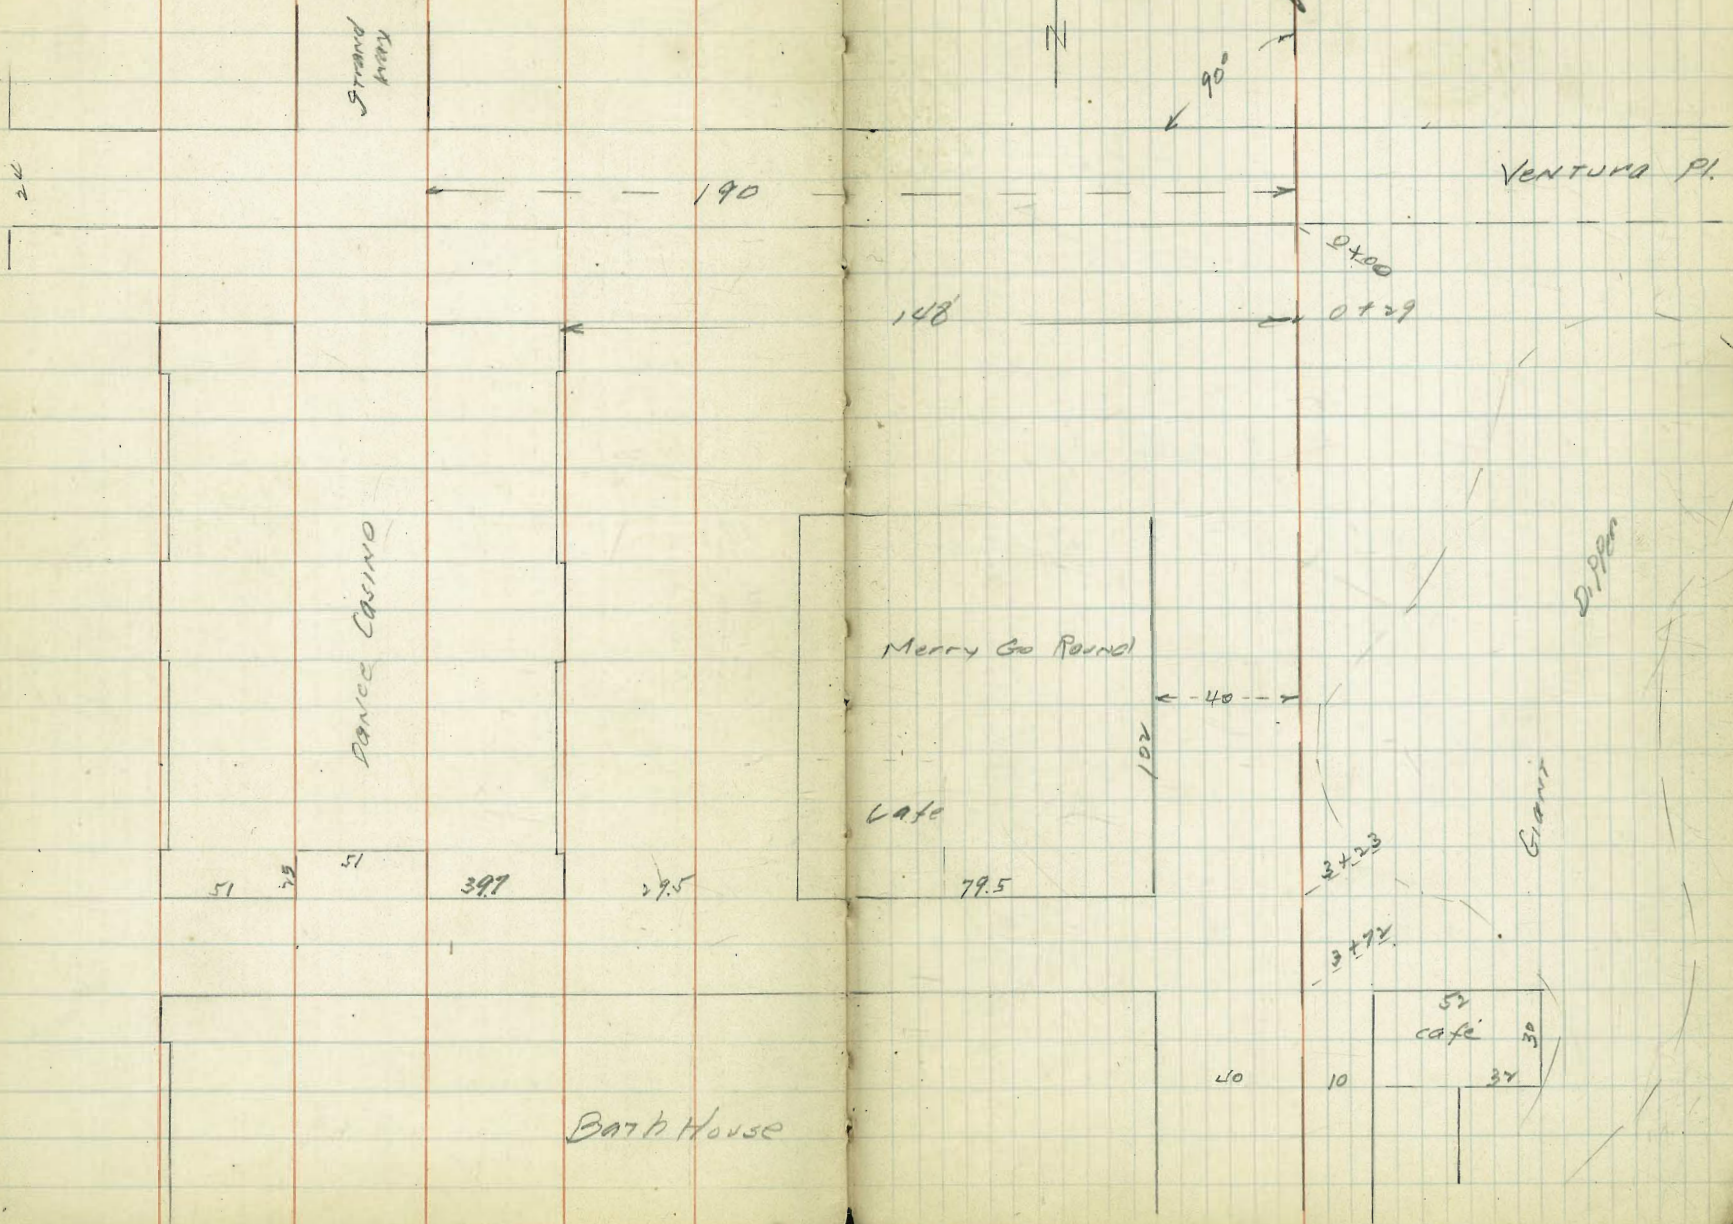 Strand
way
N
90°
20
190
Ventura Pl.
0+00
148
0+29
Dance Casino
Merry Go Round
40
102
Dipper
Giant
Cafe
51
51
397
29.5
79.5
3+23
3+72
52
café
30
32
40
10
Bath House